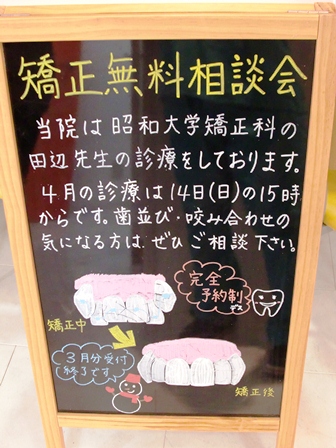 矯正無料相談会
当院は昭和大学矯正科の
田辺先生の診療をしております。
4月の診療は14日(日)の15時
からです。歯並び・咬み合わせの
気になる方は、ぜひご相談下さい。
完全
予約制
デス
矯正中
3月分受付
終了です
矯正後